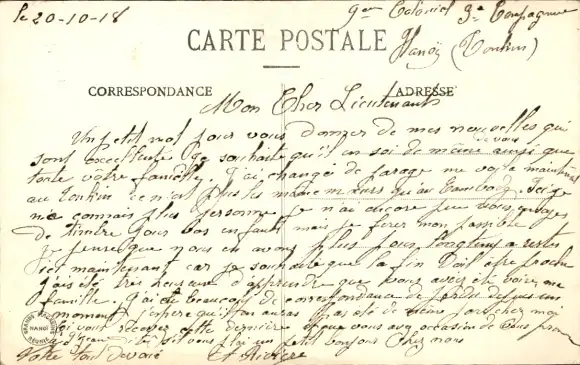 le 20-10-18
9ème Colonial 9e Compagnie
Hanoï (Tonkin)
CARTE POSTALE
CORRESPONDANCE
ADRESSE
Mon Cher Lieutenant
Un petit mot pour vous donner de mes nouvelles qui
sont excellentes je souhaite qu'il en soi de même ainsi que
toute votre famille. J'ai changé de parage me voila maintenant
au Tonkin ce n'est plus les même mœurs qu'au
ne connais plus personne je n'ai encore peu vous
de timbre pour vos enfants mais je ferai mon possible
je pense que nous en avons plus pour longtemp a rester
ici maintenant car je souhaite que la fin doit être proche
j'ai été très heureux d'apprendre que vous avez été voire ma
famille. J'ai eu beaucoup de correspondance de perdu depuis un
moment j'espère qu'il en aura pas été de même pour chez moi
vous recevez cette dernière si que vous avez occasion de
un petit bonjour chez nous
Votre tout dévoué
Et Rivière
HANOI